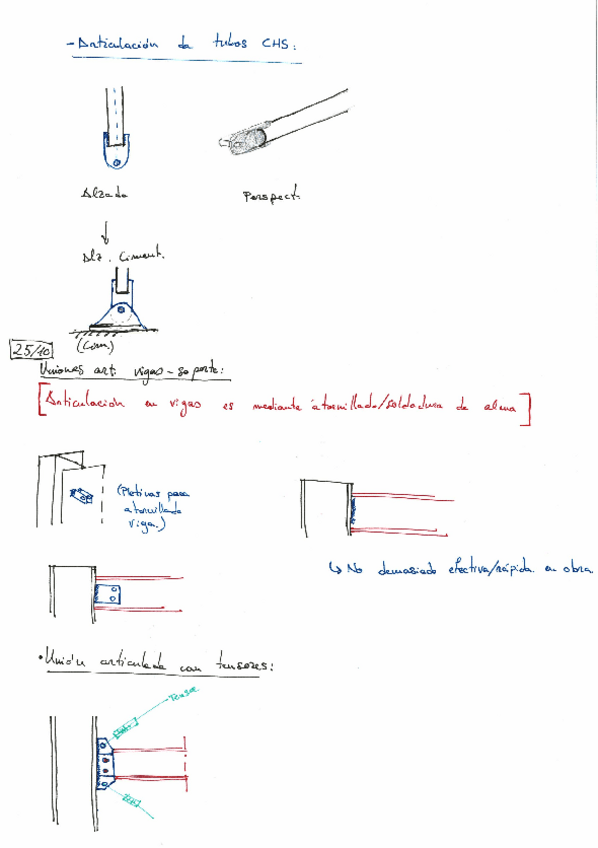 - Articulación de tubos CHS:
Alzado
Perspect.
Alz. Ciment.
(Cim.)
25/10
Uniones art. vigas-soporte:
[Articulación en vigas es mediante atornillado/soldadura de alma]
(Pletinas para
atornillado
viga.)
↳ No demasiado efectiva/rápida en obra.
• Unión articulada con tensores:
Tensor